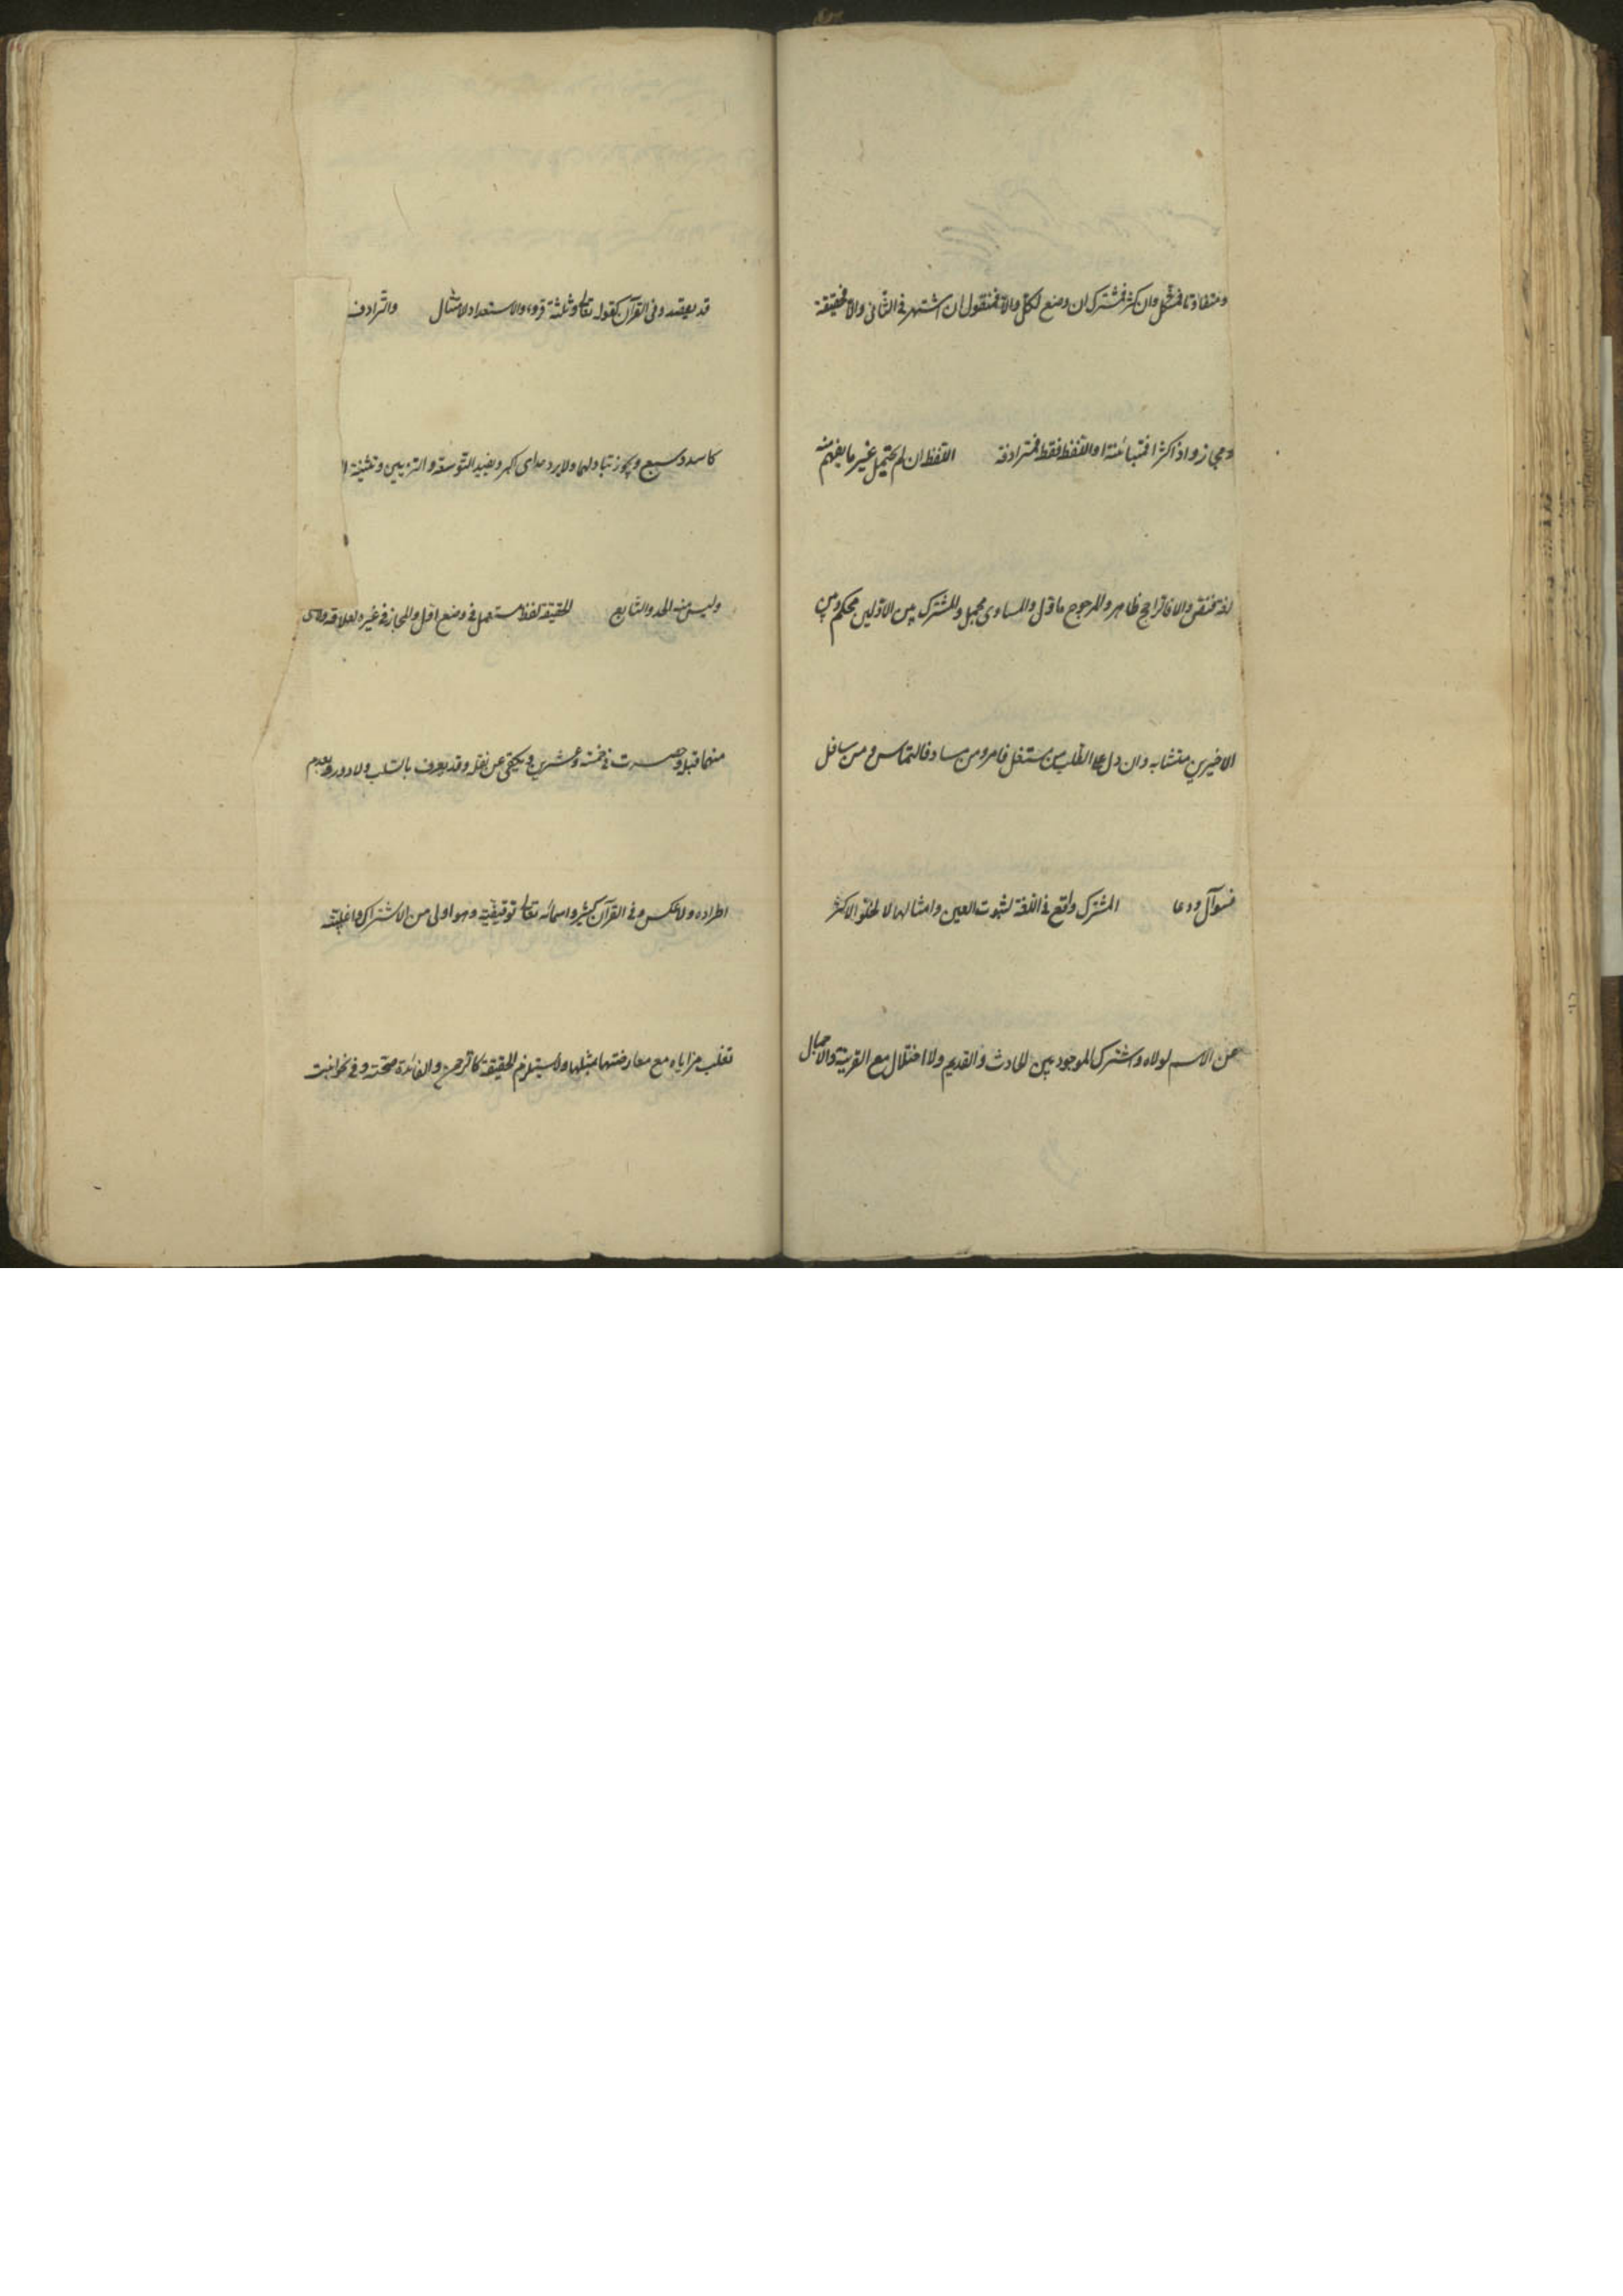 ومتفاوتا فمشكل وان كثر فمشترك ان وضع لكل والا فمنقول ان اشتهر فى الثانى والا فحقيقة
ومجاز واذا كثرا فمتباينة او اللفظ فقط فمترادفة اللفظ ان لم يحتمل غير ما يفهم منه
لغة فنص والا فالراجح ظاهر والمرجوح مأول والمساوى مجمل والمشترك بين الاولين محكم وبين
الاخيرين متشابه وان دل على الطلب من مستعل فامر ومن مساو فالتماس ومن سافل
فسوآل ودعا المشترك واقع فى اللغة لثبوت العين وامثالها لا لخلو الاكثر
عن الاسم لولاه واشتراك الموجود بين الحادث والقديم ولا اختلال مع القرينة والاجمال
قد يقصد وفى القرآن كقوله تعالى وثلثة قروء والاستعداد لامتثال والترادف
كاسد وسبع ويجوز تبادلهما ولا يرد خداى اكبر ويفيد التوسعة والتزيين
وليس منه الحد والتابع الحقيقة لفظ مستعمل فى وضع اول والمجاز فى غيره لعلاقة
وحصرت فى خمسة وعشرين ويكفى عن نقل وقد يعرف بالسلب ولا دور وبعدم
اطراده ولا عكس وفى القرآن كثير واسمائه تعالى توقيفية وهو اولى من الاشتراك لاغلبيته
تغلب مزاياه مع معارضتها بمثلها ولا يستلزم الحقيقة كالرحمن والفائدة صحته وفى نحو انبت